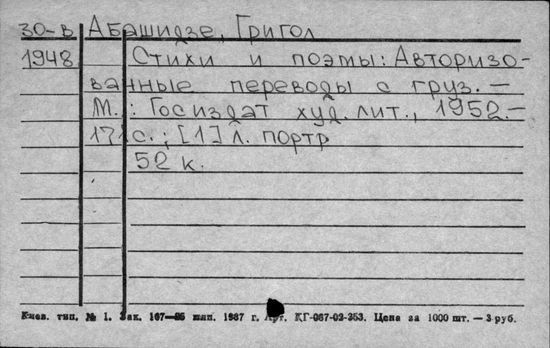 30-в Абашидзе, Григол
1948 Стихи и поэмы: Авторизо-
ванные переводы с груз. —
М.: Госиздат худ. лит., 1952. —
171 с.; [1] л. портр
52 к.
Киев. тип. № 1. Зак. 167—85 млн. 1987 г. Арт. КГ-067-02-353. Цена за 1000 шт. — 3 руб.